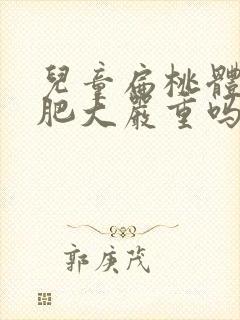 兒童扁桃體
肥大嚴重吗
郭庚茂